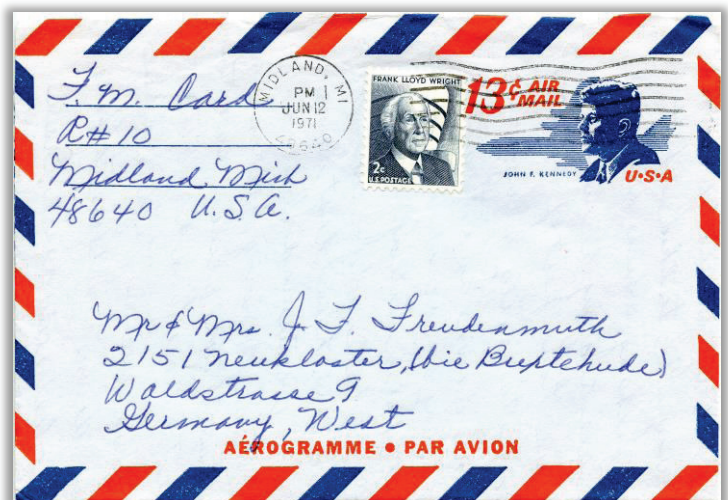 F. M. Card
R#10
Midland Mich
48640 U.S.A.
MIDLAND, MI
PM
JUN 12
1971
48640
FRANK LLOYD WRIGHT
2c
U.S. POSTAGE
13¢ AIR
MAIL
JOHN F. KENNEDY
U•S•A
Mr & Mrs. J. F. Freudenmuth
2151 Neukloster, (bie Buxtehude)
Waldstrasse 9
Germany, West
AÉROGRAMME • PAR AVION